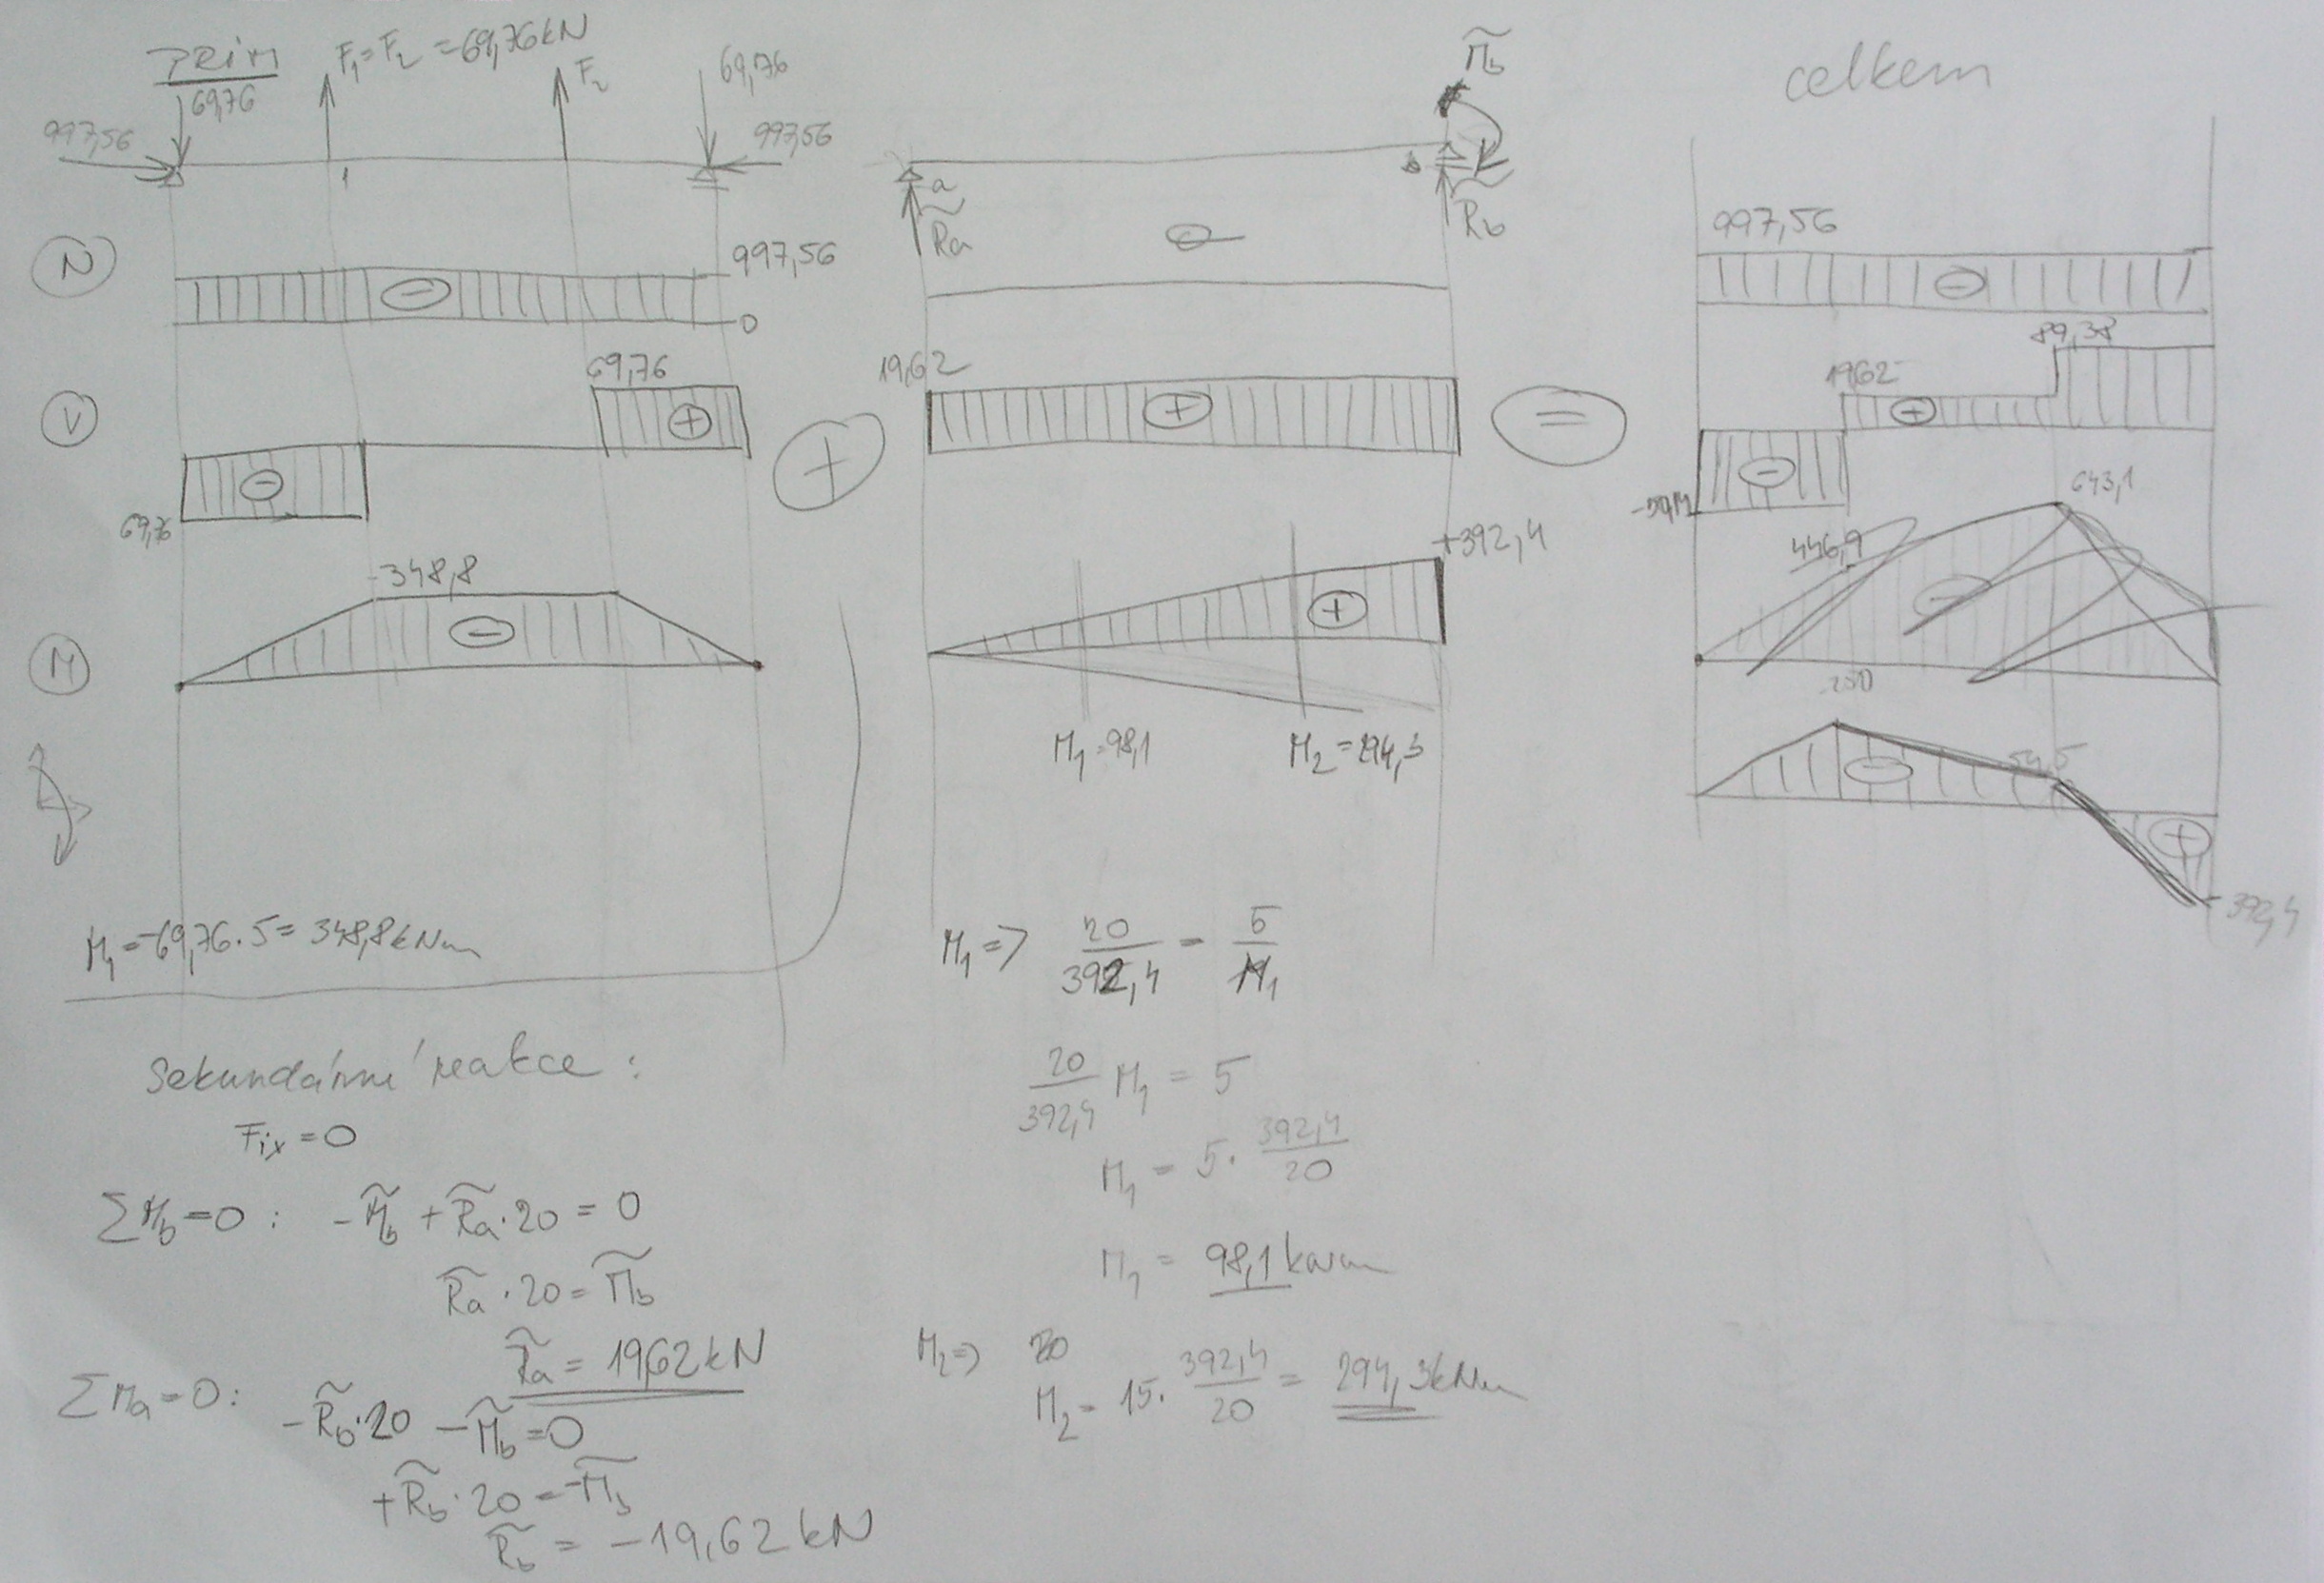 PRIM
F₁=F₂ = 69,76 kN
F₂
69,76
69,76
997,56
997,56
1
N
997,56
0
V
69,76
+
-
69,76
M
-348,8
-
M₁=-69,76.5= 348,8 kNm
M̃b
a
b
R̃a
R̃b
19,62
+
+
+392,4
+
M₁=98,1
M₂=294,3
=
celkem
997,56
-
89,38
19,62
+
-
643,1
446,9
-
250
-
54,5
+
392,4
Sekundární reakce :
Fix = 0
ΣMb=0 : -M̃b + R̃a·20 = 0
R̃a · 20 = M̃b
R̃a = 19,62 kN
ΣMa=0 : -R̃b·20 -M̃b=0
+R̃b·20 = -M̃b
R̃b = -19,62 kN
M₁=> 20/392,4 = 5/M₁
20/392,4 M₁ = 5
M₁ = 5 · 392,4/20
M₁ = 98,1 kNm
M₂=> M₂= 15. 392,4/20 = 294,3 kNm